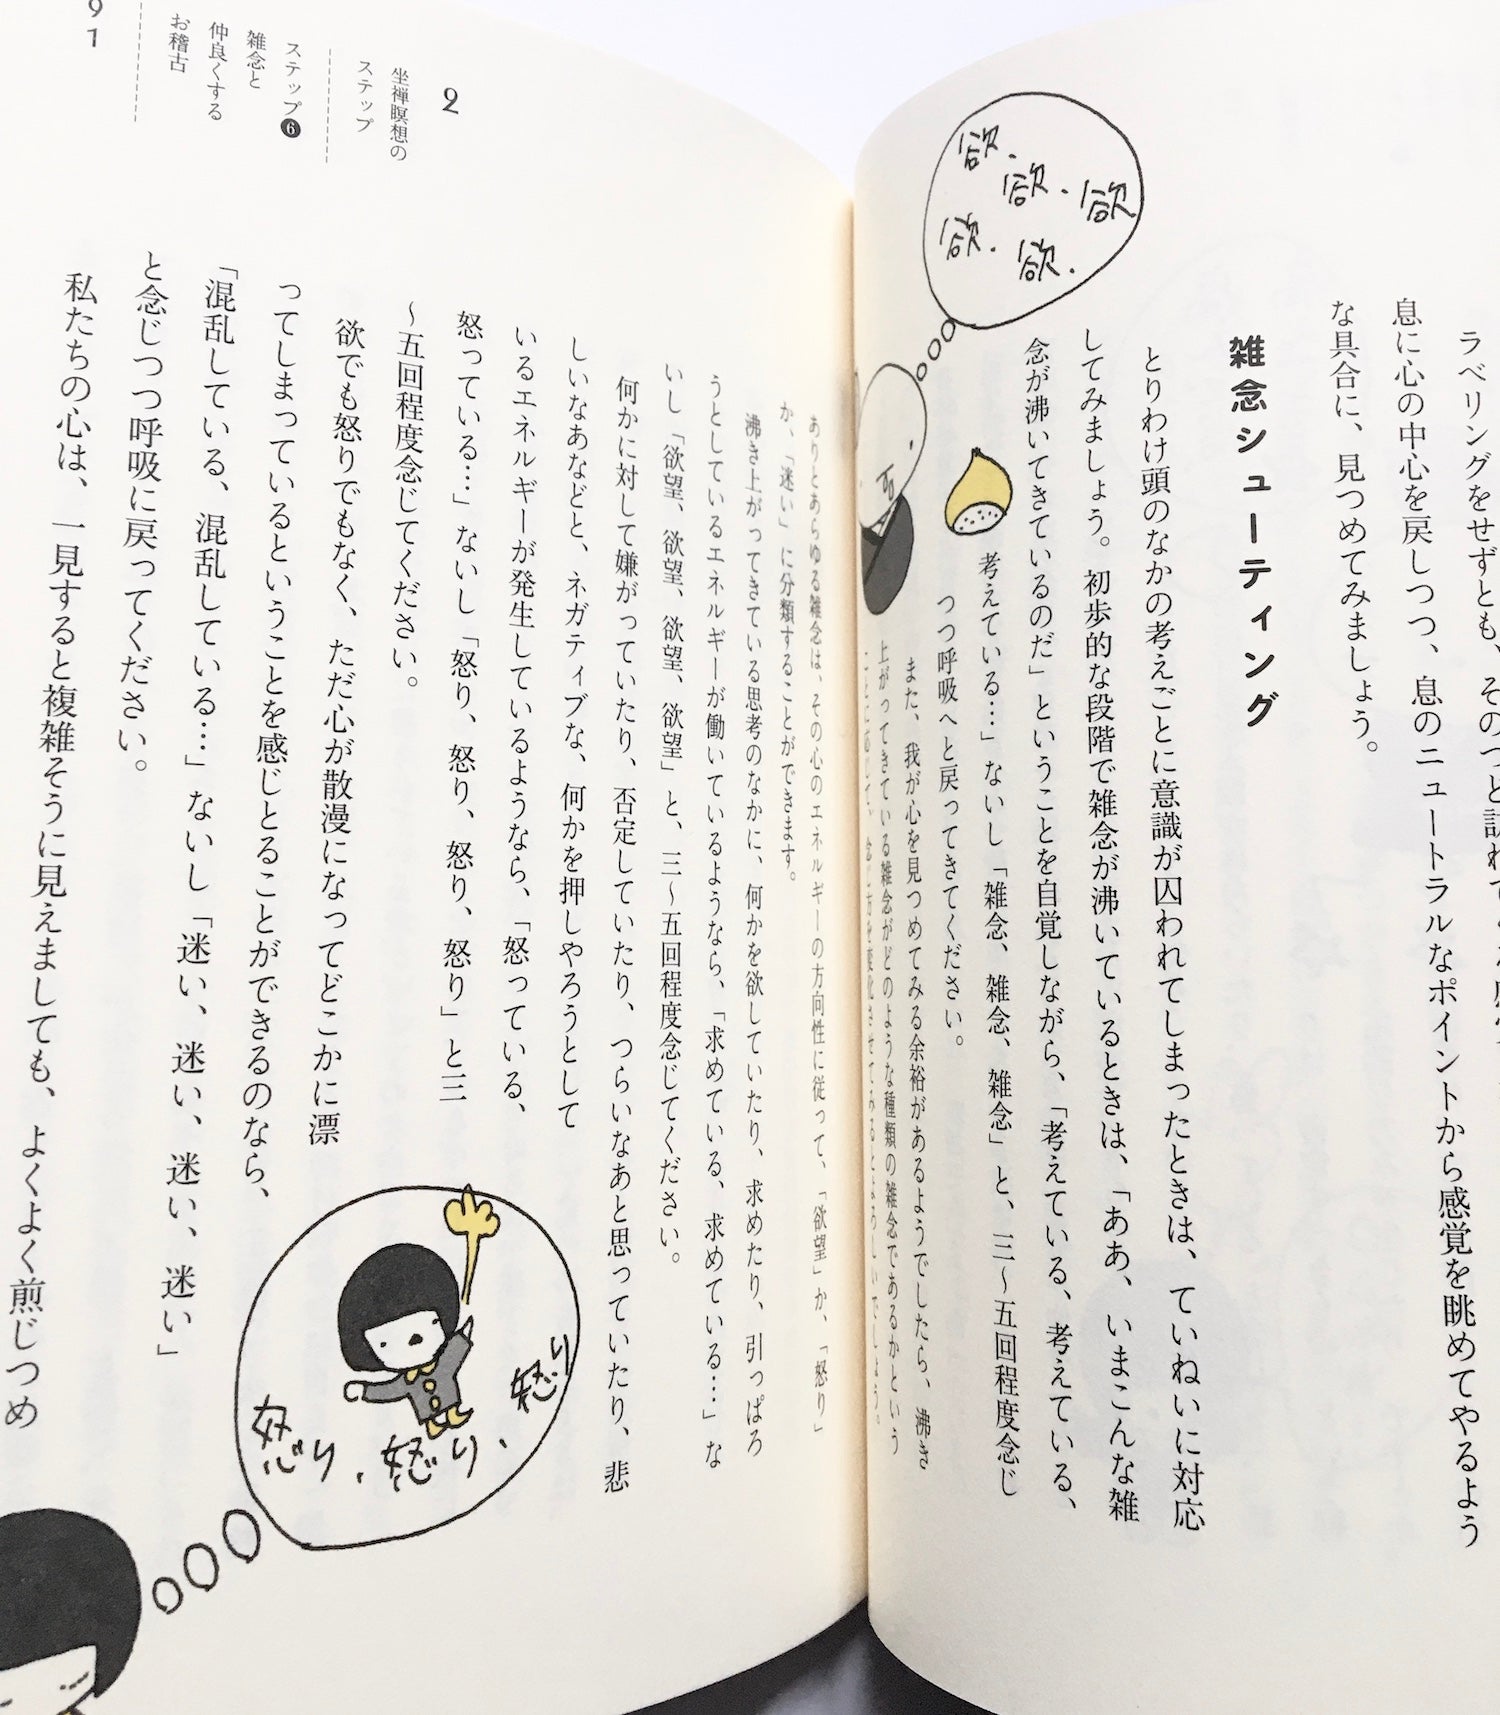 ラベリングをせずとも、そのつど訪れて
息に心の中心を戻しつつ、息のニュートラルなポイントから感覚を眺めてやるよう
な具合に、見つめてみましょう。
雑念シューティング
とりわけ頭のなかの考えごとに意識が囚われてしまったときは、ていねいに対応
してみましょう。初歩的な段階で雑念が沸いているときは、「ああ、いまこんな雑
念が沸いてきているのだ」ということを自覚しながら、「考えている、考えている、
考えている…」ないし「雑念、雑念、雑念」と、三〜五回程度念じ
つつ呼吸へと戻ってきてください。
また、我が心を見つめてみる余裕があるようでしたら、沸き
上がってきている雑念がどのような種類の雑念であるかという
ことに応じて、念じ方を変化させてみるとよろしいでしょう。
欲.
欲.欲
欲.
欲.
2
坐禅瞑想の
ステップ
ステップ❻
雑念と
仲良くする
お稽古
91
ありとあらゆる雑念は、その心のエネルギーの方向性に従って、「欲望」か、「怒り」
か、「迷い」に分類することができます。
沸き上がってきている思考のなかに、何かを欲していたり、求めたり、引っぱろ
うとしているエネルギーが働いているようなら、「求めている、求めている…」な
いし「欲望、欲望、欲望、欲望」と、三〜五回程度念じてください。
何かに対して嫌がっていたり、否定していたり、つらいなあと思っていたり、悲
しいなあなどと、ネガティブな、何かを押しやろうとして
いるエネルギーが発生しているようなら、「怒っている、
怒っている…」ないし「怒り、怒り、怒り、怒り」と三
〜五回程度念じてください。
欲でも怒りでもなく、ただ心が散漫になってどこかに漂
ってしまっているということを感じとることができるのなら、
「混乱している、混乱している…」ないし「迷い、迷い、迷い、迷い」
と念じつつ呼吸に戻ってください。
私たちの心は、一見すると複雑そうに見えましても、よくよく煎じつめ
怒り
怒り、怒り、